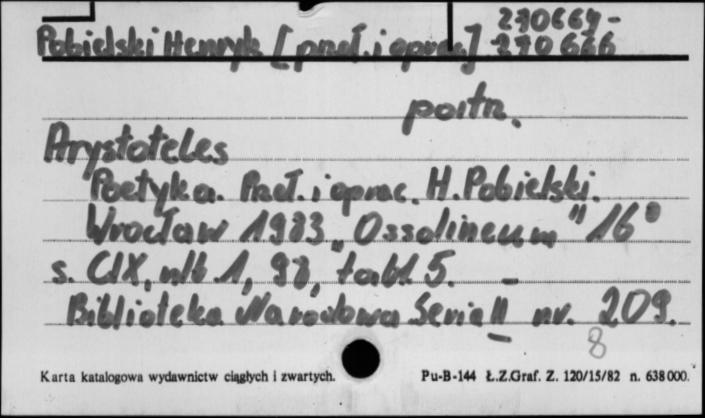 270664-
Pobielski Henryk [przeł. i oprac.] 270666
portr.
Arystoteles
Poetyka. Przeł. i oprac. H. Pobielski.
Wrocław 1983 „Ossolineum" 16°
s. CIX, nlb 1, 98, tabl. 5. –
Biblioteka Narodowa Seria II nr. 209.
8
Karta katalogowa wydawnictw ciągłych i zwartych. Pu-B-144 Ł.Z.Graf. Z. 120/15/82 n. 638000.